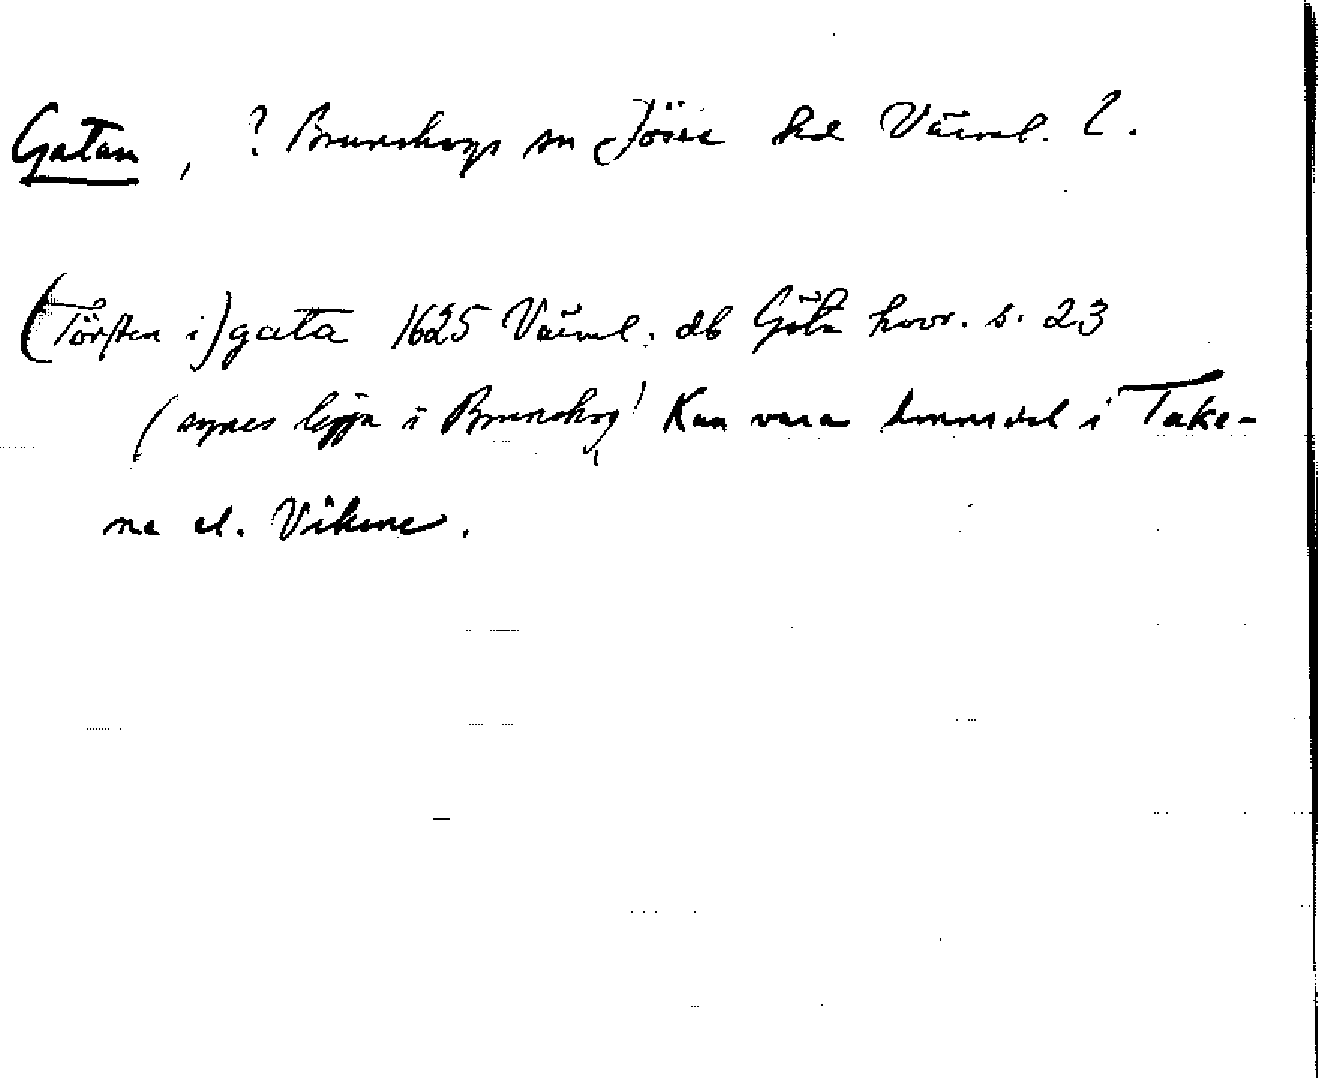 Gatan, ? Brunskogs sn Jösse hd Värml. l.
(Törsten i) gata 1625 Värml. db Göta hovr. s. 23
(synes ligga i Brunskog) Kan vara hemmavid i Take-
ne el. Vikene.